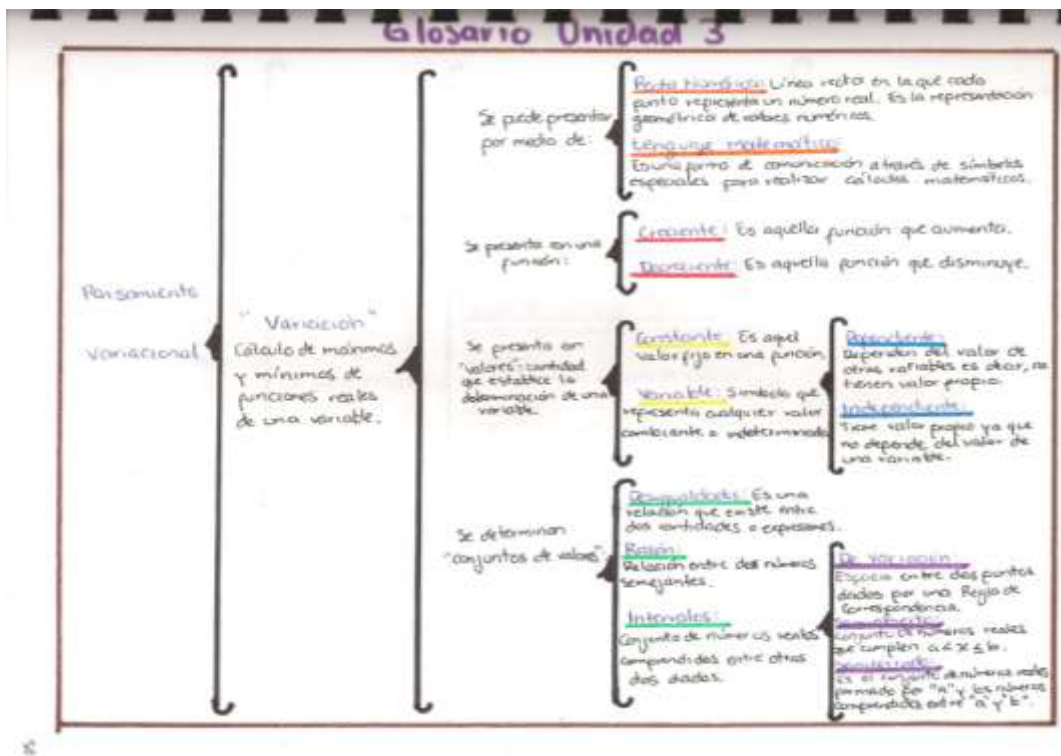 Glosario Unidad 3
Pensamiento
Variacional
"Variación"
Cálculo de máximos
y mínimos de
funciones reales
de una variable.
Se puede presentar
por medio de:
Recta Numérica: Línea recta en la que cada
punto representa un número real. Es la representación
geométrica de valores numéricos.
Lenguaje matemático:
Es una forma de comunicación a través de símbolos
especiales para realizar cálculos matemáticos.
Se presenta en una
función:
Creciente: Es aquella función que aumenta.
Decreciente: Es aquella función que disminuye.
Se presenta en
"valores": cantidad
que establece la
determinación de una
variable.
Constante: Es aquel
valor fijo en una función
Variable: Símbolo que
representa cualquier valor
cambiante o indeterminado
Dependiente:
Dependen del valor de
otras variables es decir, no
tienen valor propio.
Independiente:
Tiene valor propio ya que
no depende del valor de
una variable.
Se determinan
"conjuntos de valores":
Desigualdades: Es una
relación que existe entre
dos cantidades o expresiones.
Razón:
Relación entre dos números
semejantes.
Intervalos:
Conjunto de números reales
comprendidos entre otros
dos dados.
De variación:
Espacio entre dos puntos
dados por una Regla de
Correspondencia.
Semiabierto:
Conjunto de números reales
que cumplen a < x ≤ b.
Semicerrado:
Es el conjunto de números reales
formado por "a" y los números
comprendidos entre "a" y "b".